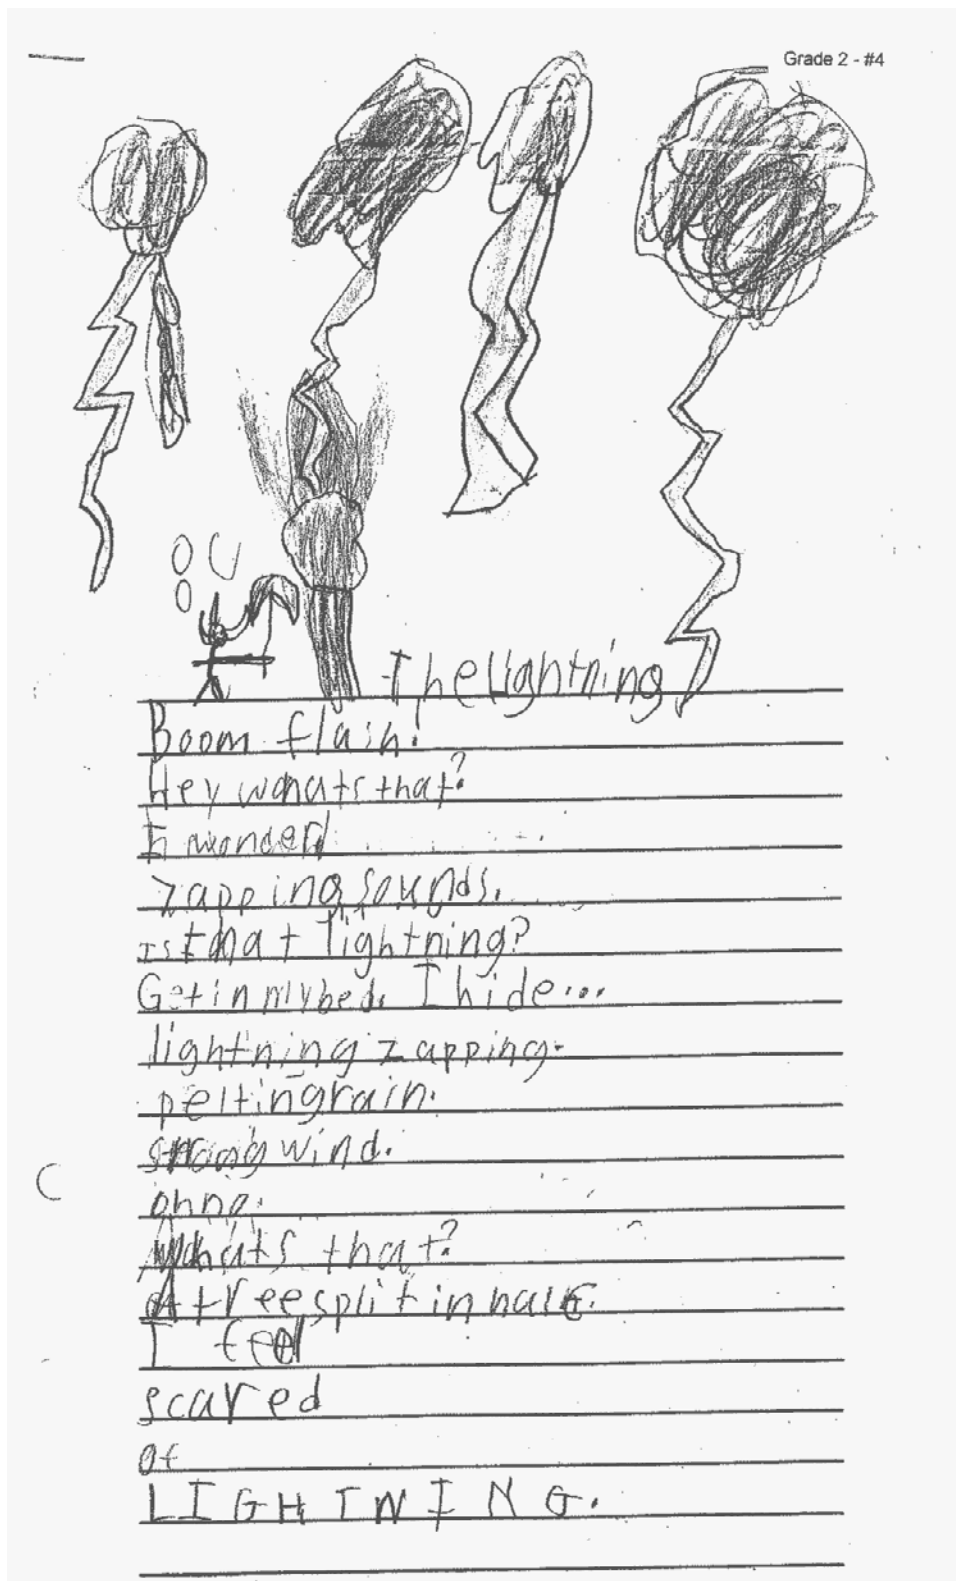 Grade 2 - #4
The lightning
Boom flash!
Hey whats that?
I wonder
zapping sounds.
Is that lightning?
Get in my bed. I hide...
lightning zapping.
pelting rain.
strong wind.
oh no.
Whats that?
A tree split in half.
I feel
scared
of
LIGHTNING.